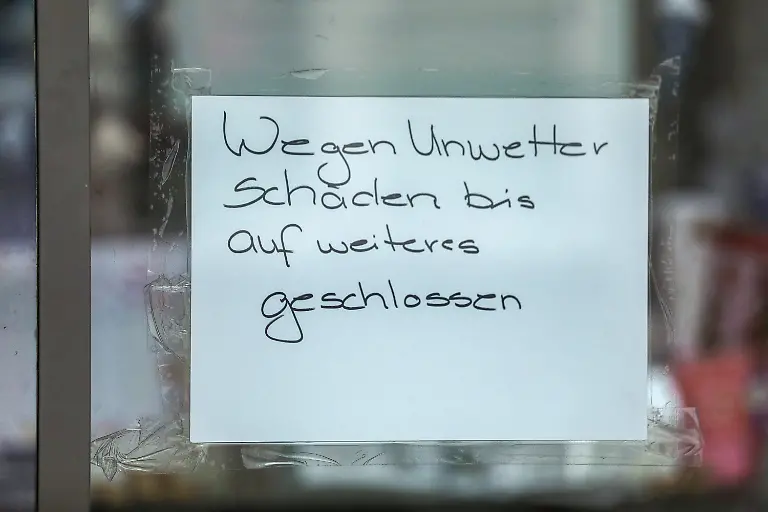 Wegen Unwetter
Schäden bis
auf weiteres
geschlossen